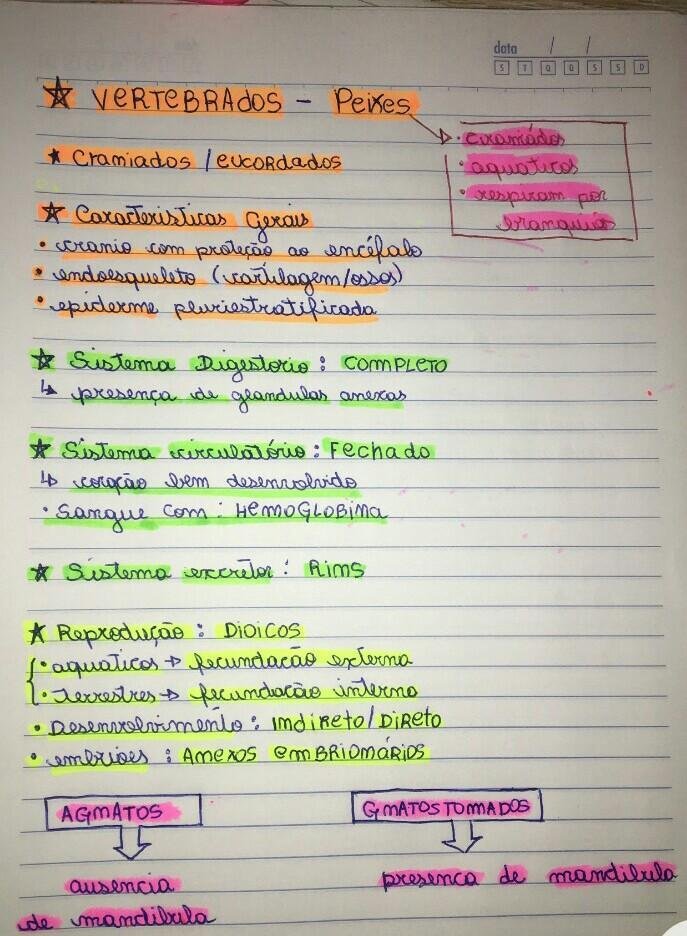 data / /
S T Q Q S S D
★ VERTEBRADOS - Peixes
• craniados
• aquaticos
• respiram por
branquias
★ Craniados / eucordados
★ Caracteristicas Gerais
• cranio com proteção ao encéfalo
• endoesqueleto (cartilagem/ossos)
• epiderme pluriestratificada
★ Sistema Digestorio : COMPLETO
↳ presença de glandulas anexas
★ Sistema circulatório : Fechado
↳ coração bem desenvolvido
• Sangue com : HEMOGLOBINA
★ Sistema excretor : Rins
★ Reprodução : DIOICOS
{ • aquaticos → fecundação externa
{ • terrestres → fecundacão interna
• Desenvolvimento : INDIRETO/DIRETO
• embrioes : ANEXOS EMBRIONÁRIOS
AGNATOS
GNATOSTOMADOS
ausencia
de mandibula
presenca de mandibula